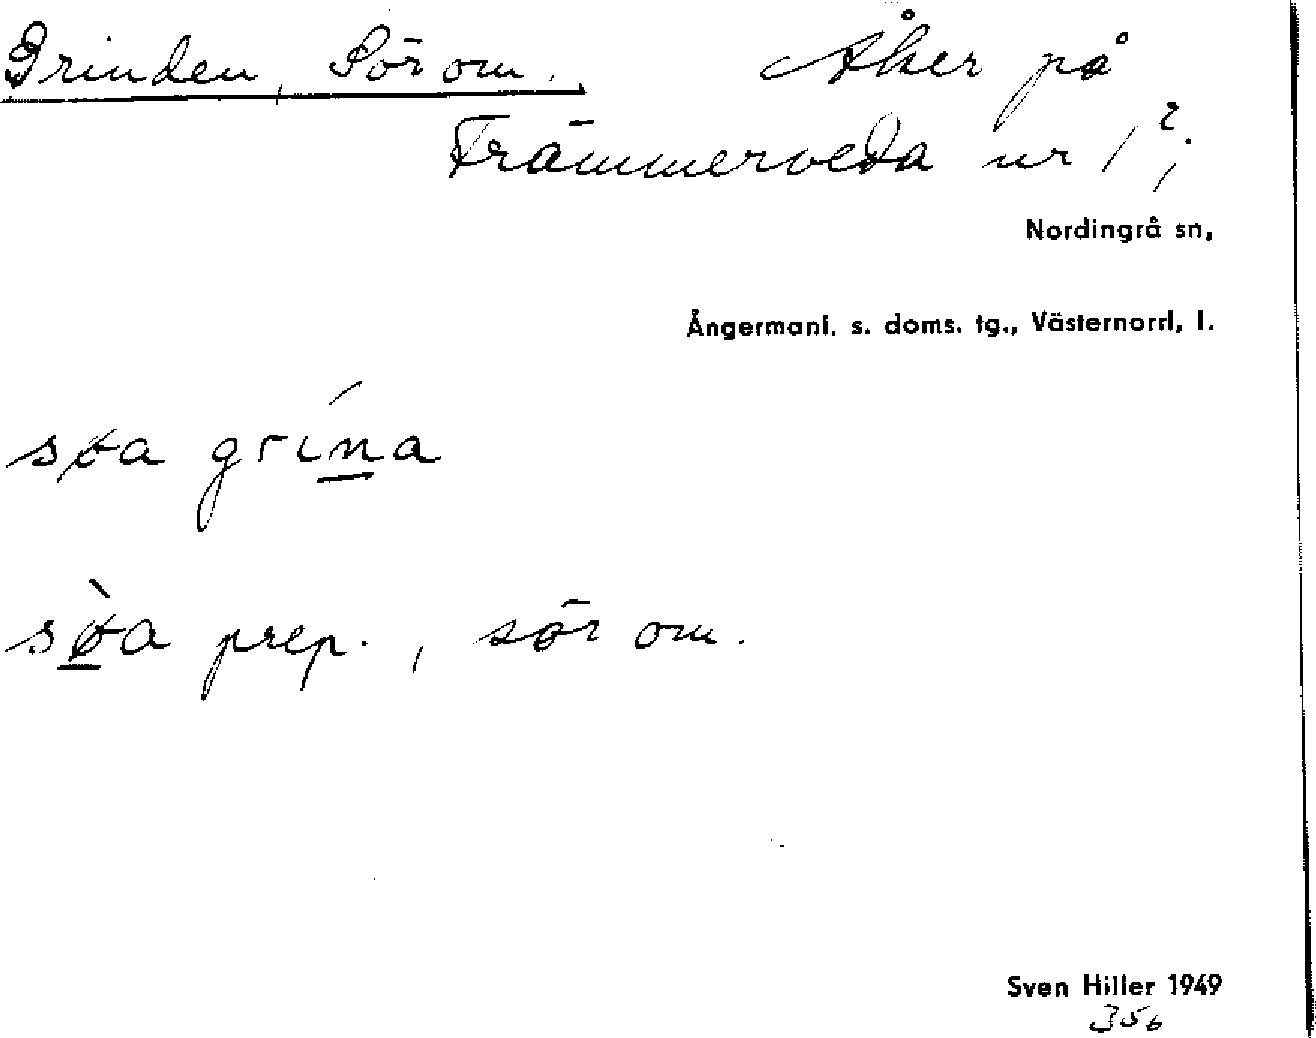 Grinden, Sör om. Åker på
Främmerveda nr 1²;
Nordingrå sn,
Ångermanl. s. doms. tg., Västernorrl, l.
søa grina
søa prep., sör om.
Sven Hiller 1949
356